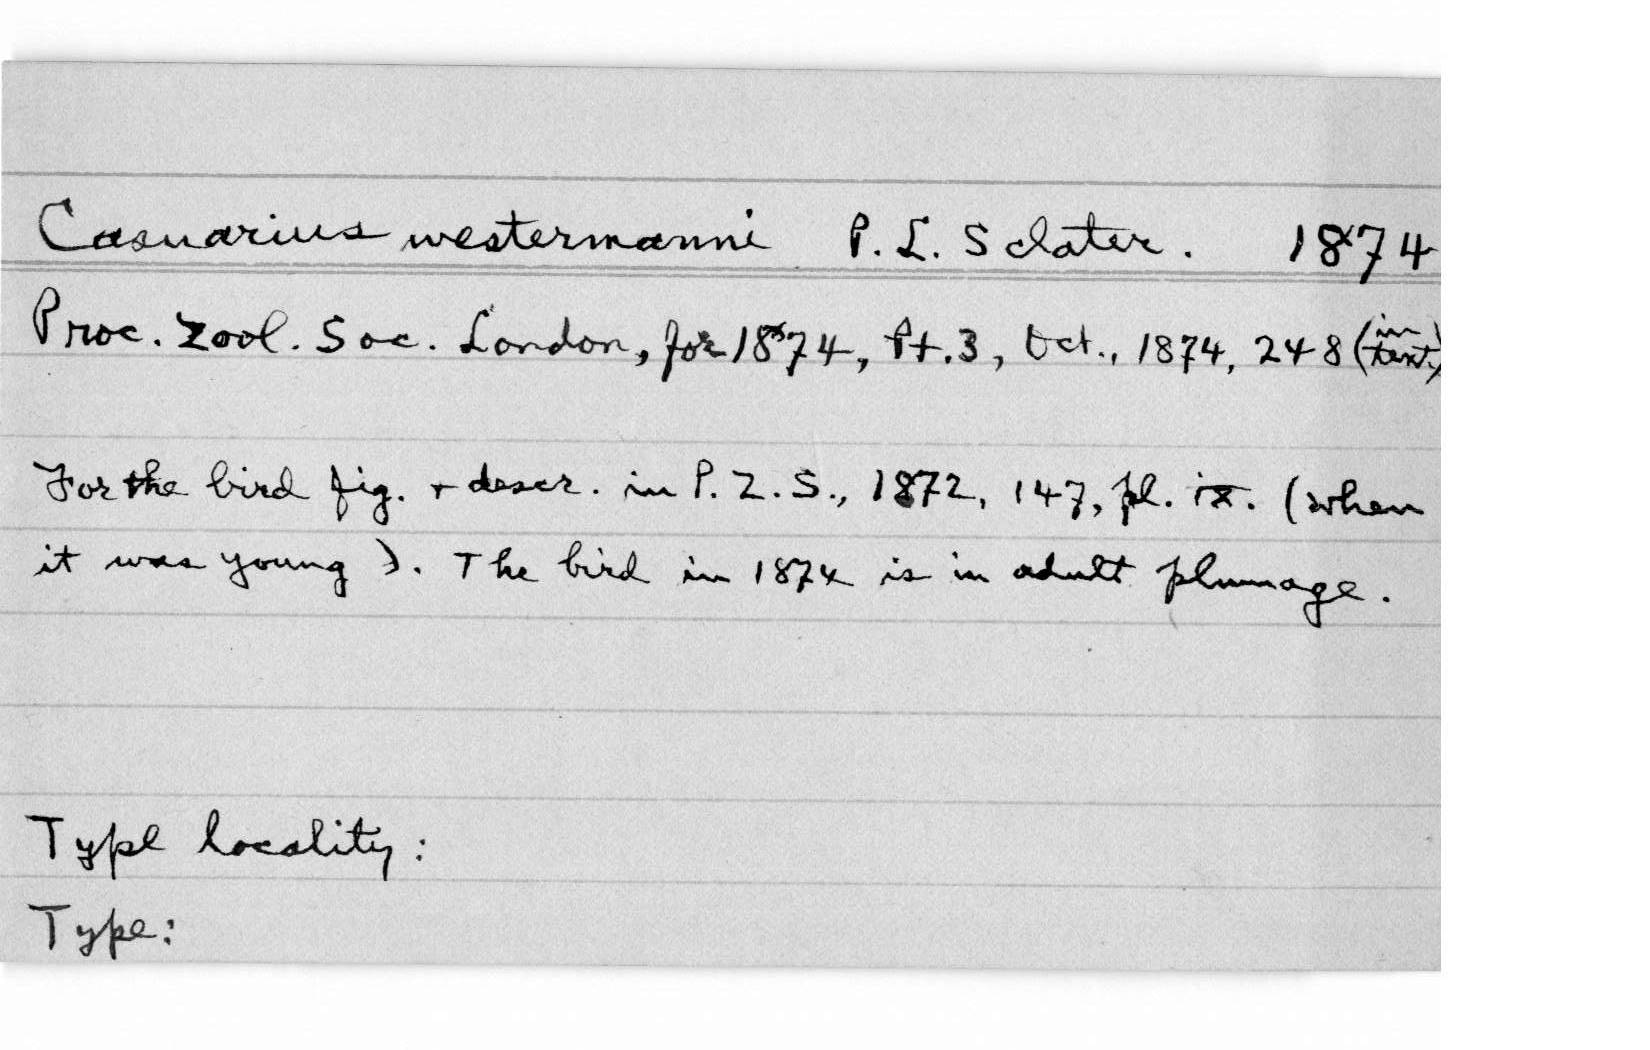 Casuarius westermanni P. L. Sclater. 1874
Proc. Zool. Soc. London, for 1874, Pt. 3, Oct., 1874, 248 (in text)
For the bird fig. + descr. in P. Z. S., 1872, 147, pl. ix. (when
it was young). The bird in 1874 is in adult plumage.
Type locality:
Type: